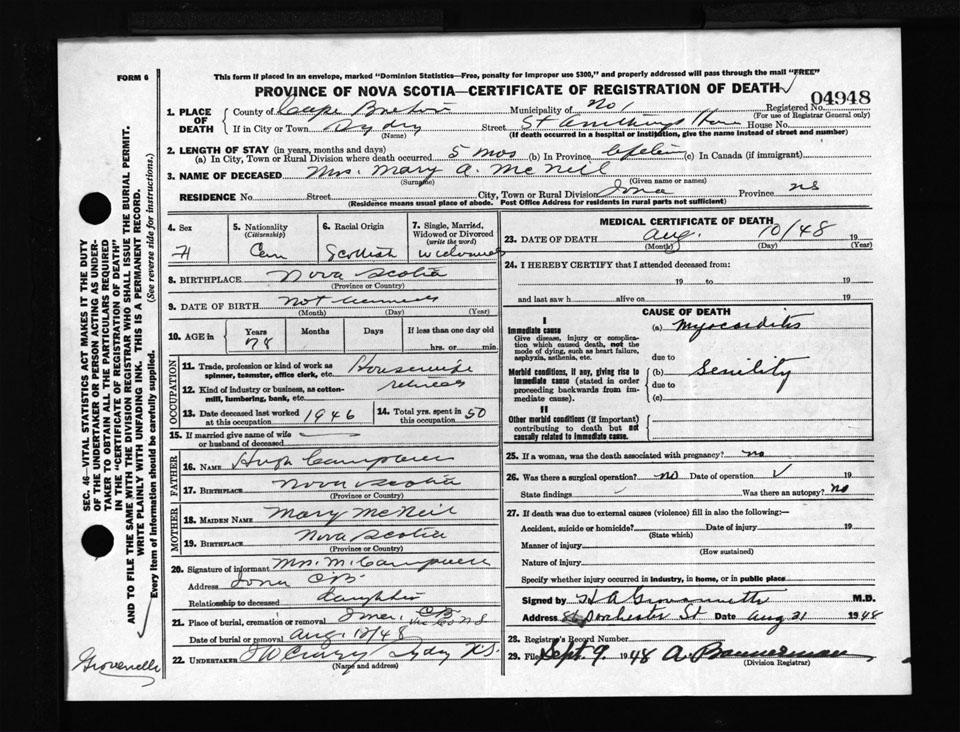 FORM 6
This form if placed in an envelope, marked "Dominion Statistics—Free, penalty for improper use $300," and properly addressed will pass through the mail "FREE"
PROVINCE OF NOVA SCOTIA—CERTIFICATE OF REGISTRATION OF DEATH
04948
1. PLACE OF DEATH County of Cape Breton Municipality of No 1 Registered No.
(For use of Registrar General only)
If in City or Town Sydney Street St Anthonys Home House No.
(Name) (If death occurred in a hospital or institution, give the name instead of street and number)
2. LENGTH OF STAY (in years, months and days)
(a) In City, Town or Rural Division where death occurred 5 mos (b) In Province (c) In Canada (if immigrant)
3. NAME OF DECEASED Mrs. Mary A. McNeil
(Surname) (Given name or names)
RESIDENCE No. Street City, Town or Rural Division Iona Province NS
(Residence means usual place of abode. Post Office Address for residents in rural parts not sufficient)
4. Sex
5. Nationality (Citizenship)
6. Racial Origin
7. Single, Married, Widowed or Divorced (write the word)
Can Scottish Widowed
8. BIRTHPLACE Nova Scotia
(Province or Country)
9. DATE OF BIRTH Not
(Month) (Day) (Year)
10. AGE in Years Months Days If less than one day old
78 hrs. or min.
OCCUPATION
11. Trade, profession or kind of work as spinner, teamster, office clerk, etc. Housewife
12. Kind of industry or business, as cotton-mill, lumbering, bank, etc. retired
13. Date deceased last worked at this occupation 1946
14. Total yrs. spent in this occupation 50
15. If married give name of wife or husband of deceased
FATHER
16. NAME Hugh Campbell
17. BIRTHPLACE Nova Scotia
(Province or Country)
MOTHER
18. MAIDEN NAME Mary McNeil
19. BIRTHPLACE Nova Scotia
(Province or Country)
20. Signature of informant Mrs. M. Campbell
Address Iona CB
Relationship to deceased daughter
21. Place of burial, cremation or removal Iona CB
Date of burial or removal Aug 12/48
22. UNDERTAKER Sydney N.S.
(Name and address)
MEDICAL CERTIFICATE OF DEATH
23. DATE OF DEATH Aug. 10/48 19
(Month) (Day) (Year)
24. I HEREBY CERTIFY that I attended deceased from:
19 to 19
and last saw h alive on 19
CAUSE OF DEATH
I
Immediate cause
Give disease, injury or complication which caused death, not the mode of dying, such as heart failure, asphyxia, asthenia, etc.
(a) Myocarditis
due to
Morbid conditions, if any, giving rise to immediate cause (stated in order proceeding backwards from immediate cause).
(b) Senility
due to
(c)
II
Other morbid conditions (if important) contributing to death but not causally related to immediate cause.
25. If a woman, was the death associated with pregnancy? no
26. Was there a surgical operation? no Date of operation 19
State findings Was there an autopsy? No
27. If death was due to external causes (violence) fill in also the following:—
Accident, suicide or homicide? Date of injury 19
(State which)
Manner of injury
(How sustained)
Nature of injury
Specify whether injury occurred in industry, in home, or in public place
Signed by M.D.
Address Dorchester St Date Aug 31 1948
28. Registrar's Record Number
29. Filed Sept. 9 1948 A. Bannerman
(Division Registrar)
SEC. 46—VITAL STATISTICS ACT MAKES IT THE DUTY
OF THE UNDERTAKER OR PERSON ACTING AS UNDER-
TAKER TO OBTAIN ALL THE PARTICULARS REQUIRED
IN THE "CERTIFICATE OF REGISTRATION OF DEATH"
AND TO FILE THE SAME WITH THE DIVISION REGISTRAR WHO SHALL ISSUE THE BURIAL PERMIT.
WRITE PLAINLY WITH UNFADING INK. THIS IS A PERMANENT RECORD.
Every item of information should be carefully supplied. (See reverse side for instructions.)